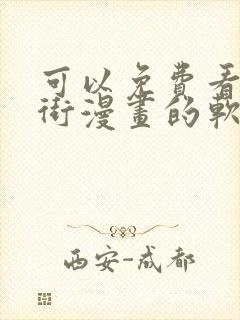 可以免费看
街漫畫的軟
西安-成都